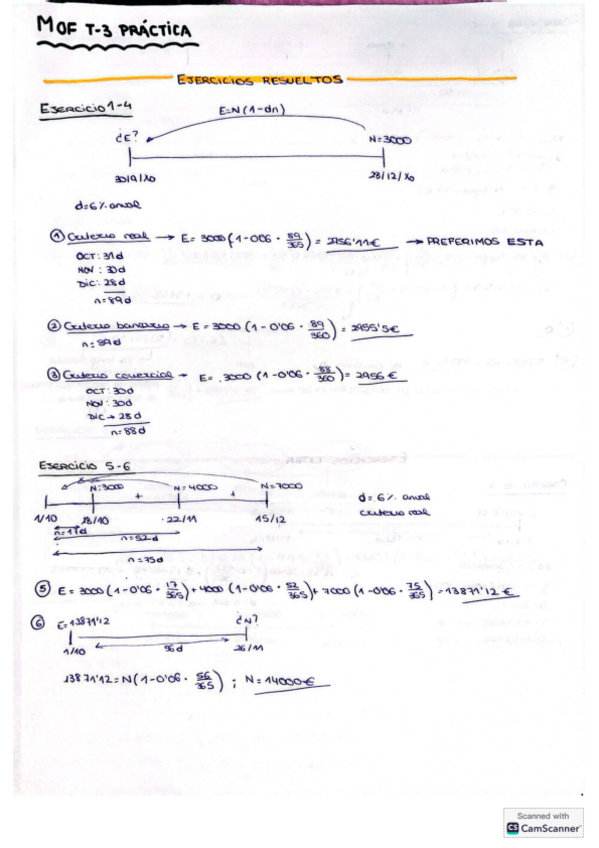 MOF T-3 PRÁCTICA
EJERCICIOS RESUELTOS
EJERCICIO 1-4
E=N(1-dn)
¿E?
N=3000
30/9/X0
28/12/X0
d=6% anual
① Criterio real → E= 3000(1-0'06 · 89/365) = 2956'11€ → PREFERIMOS ESTA
OCT: 31d
NOV: 30d
DIC: 28d
n=89d
② Criterio bancario → E = 3000 (1-0'06 · 89/360) = 2955'5€
n=89d
③ Criterio comercial → E= 3000 (1-0'06 · 88/360) = 2956€
OCT: 30d
NOV: 30d
DIC → 28d
n=88d
EJERCICIO 5-6
N=3000 + N=4000 + N=7000
1/10 18/10 22/11 15/12
n=17d
n=52d
n=75d
d=6% anual
criterio real
⑤ E= 3000(1-0'06 · 17/365)+4000 (1-0'06 · 52/365)+7000 (1-0'06 · 75/365) = 13871'12€
⑥ E=13871'12
¿N?
56d
1/10 26/11
13871'12=N(1-0'06 · 56/365) ; N=14000€
Scanned with
CS CamScanner